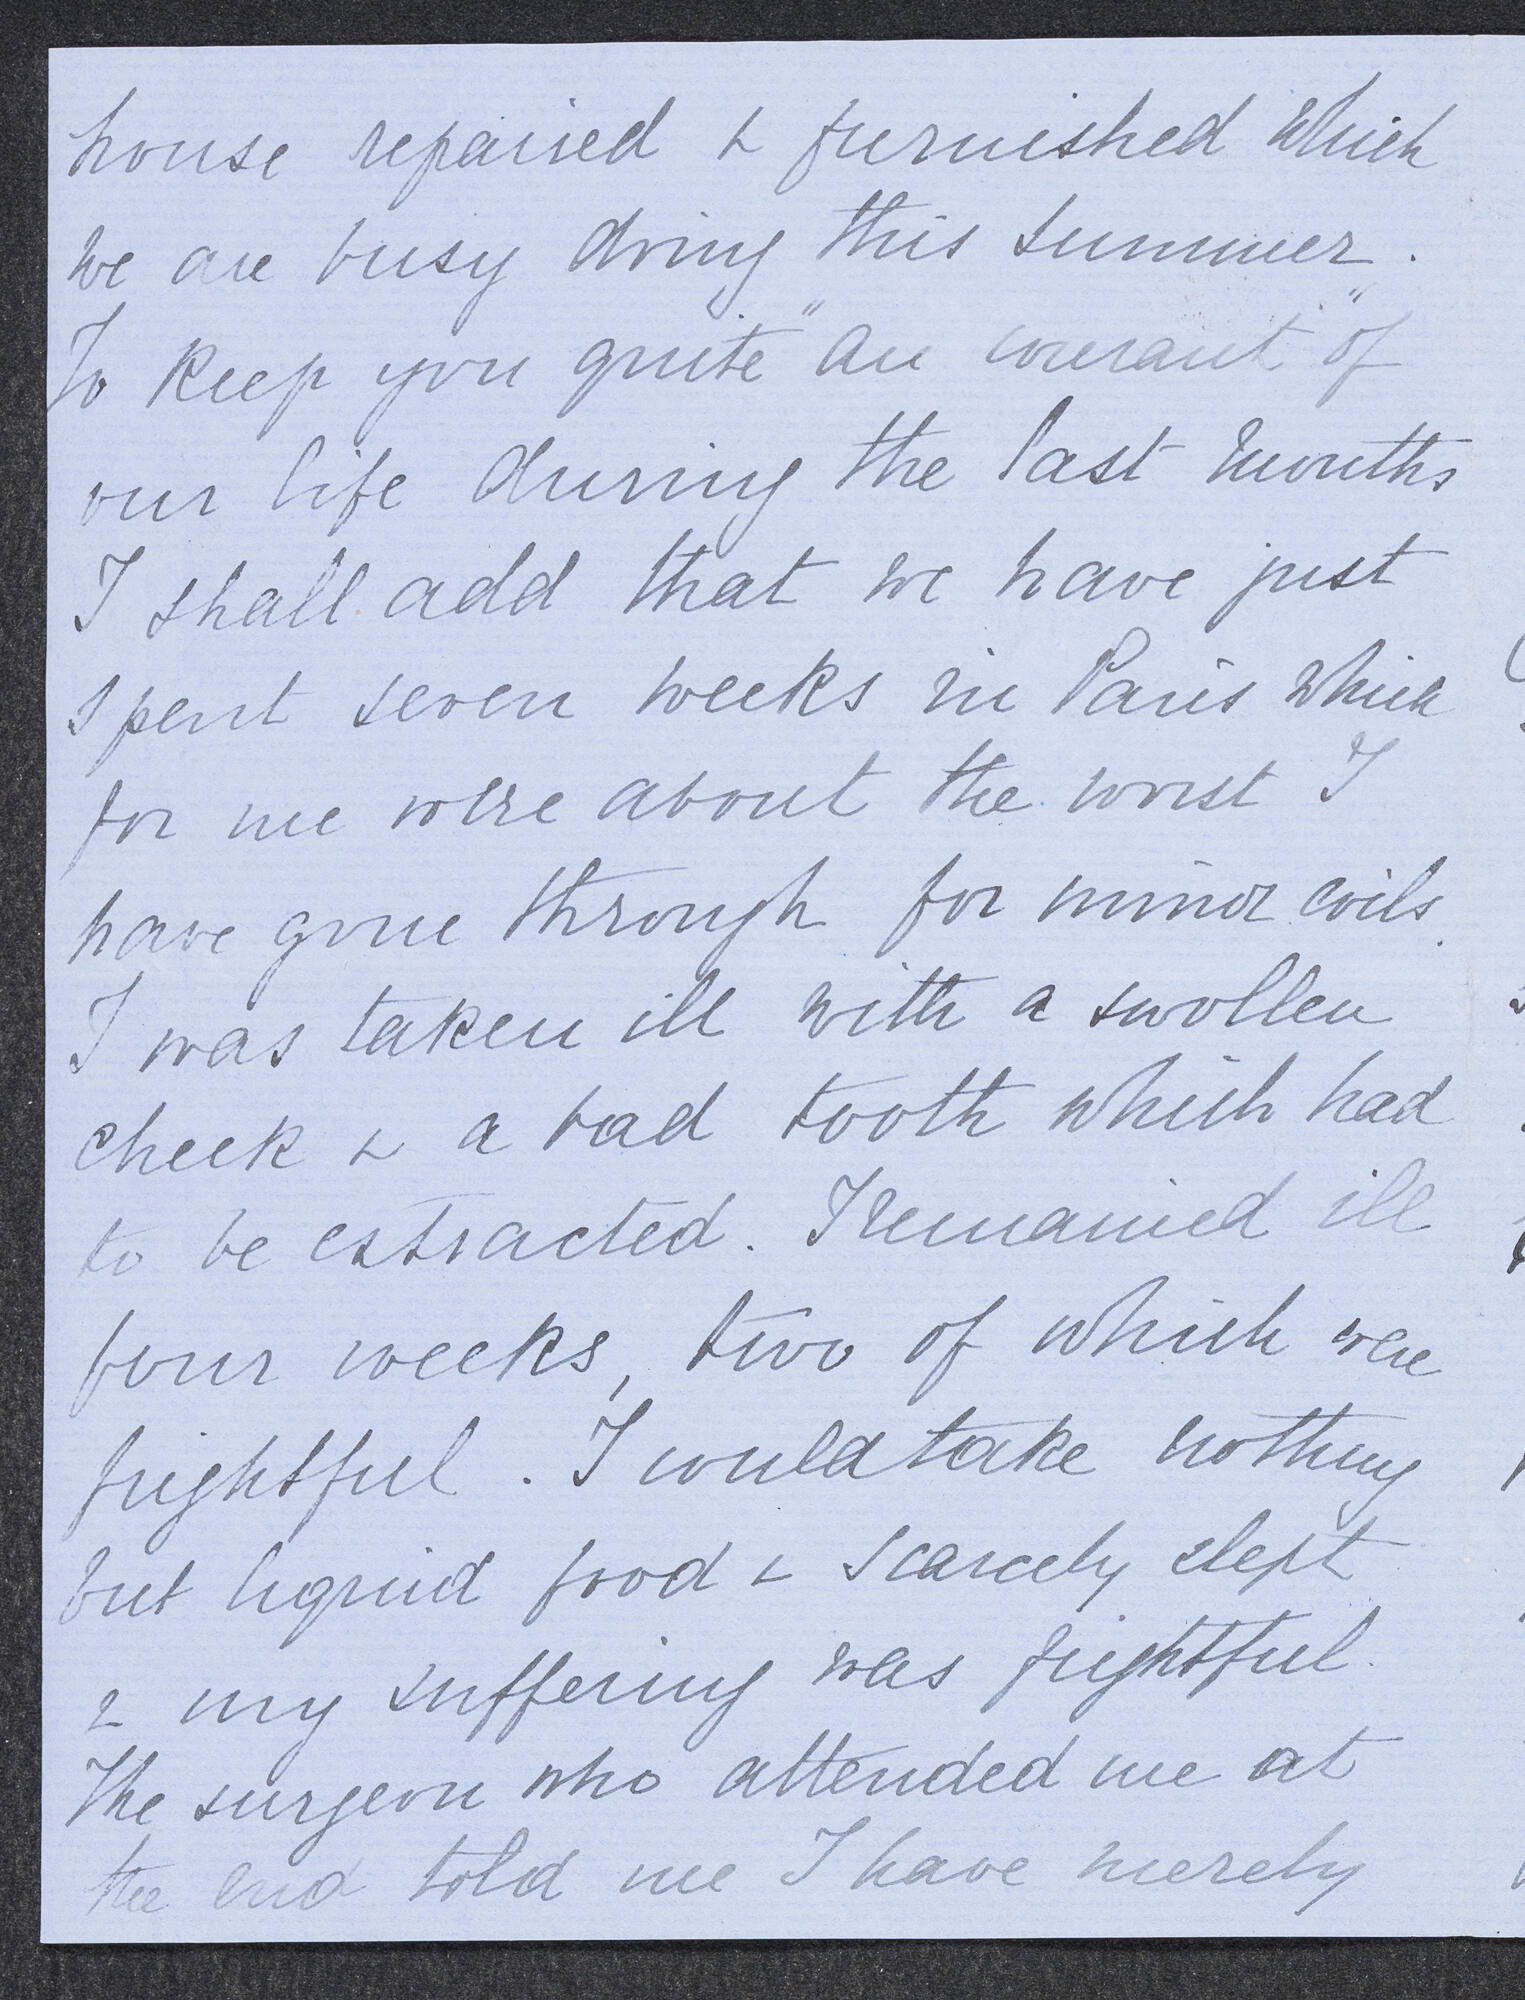 house repaired & furnished which
we are busy doing this summer.
To keep you quite "au courant" of
our life during the last months
I shall add that we have just
spent seven weeks in Paris which
for me were about the worst I
have gone through for minor evils.
I was taken ill with a swollen
cheek & a bad tooth which had
to be extracted. I remained ill
four weeks, two of which were
frightful. I would take nothing
but liquid food & scarcely slept
& my suffering was frightful.
The surgeon who attended me at
the end told me I have merely